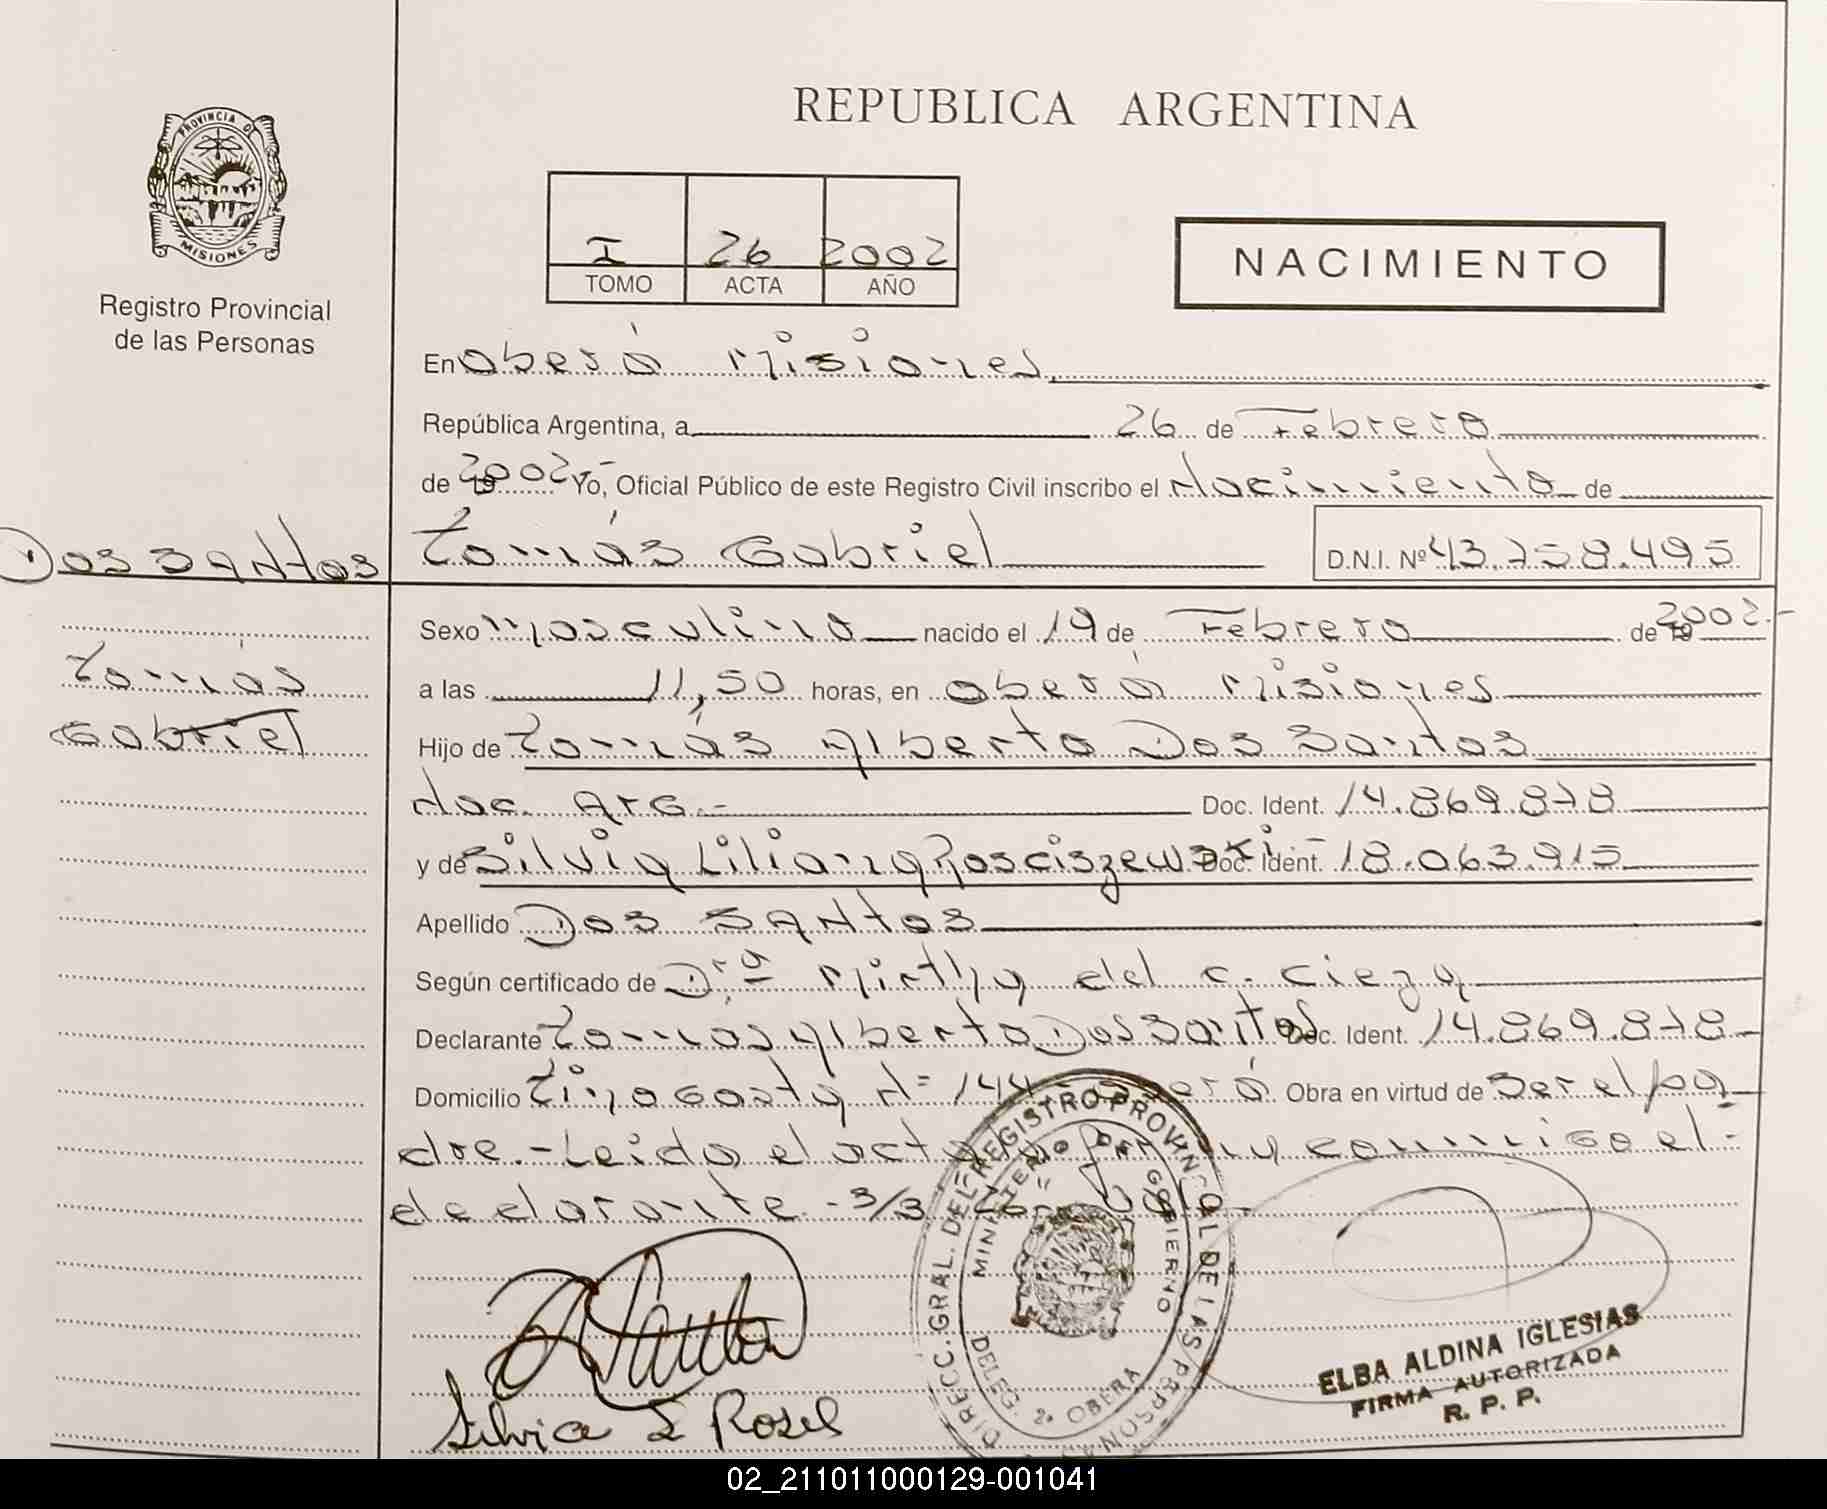 PROVINCIA D
MISIONES
Registro Provincial
de las Personas
REPUBLICA ARGENTINA
I 26 2002
TOMO ACTA AÑO
NACIMIENTO
En Oberá Misiones
República Argentina, a 26 de Febrero
de 19 2002 Yo, Oficial Público de este Registro Civil inscribo el Nacimiento de
Dos Santos
Tomás Gabriel
D.N.I. Nº 43.758.495
Tomás
Gabriel
Sexo Masculino nacido el 19 de Febrero de 19 2002.-
a las 11,50 horas, en Oberá Misiones
Hijo de Tomás Alberto Dos Santos
Nac. Arg.- Doc. Ident. 14.869.878
y de Silvia Liliana Rosciszewski.- Doc. Ident. 18.063.915
Apellido Dos Santos
Según certificado de Dra. Mirthy del C. Cieza
Declarante Tomas Alberto Dos Santos Doc. Ident. 14.869.878-
Domicilio Tinogasta Nº 144- Oberá Obra en virtud de Ser el pa
dre.- Leido el acta firman y conmigo el-
declarante.-3/3
DIRECC. GRAL. DEL REGISTRO PROVINCIAL DE LAS PERSONAS
MINISTERIO DE GOBIERNO
DELEG. 2ª OBERA
Silvia L Rosch
ELBA ALDINA IGLESIAS
FIRMA AUTORIZADA
R. P. P.
02_211011000129-001041